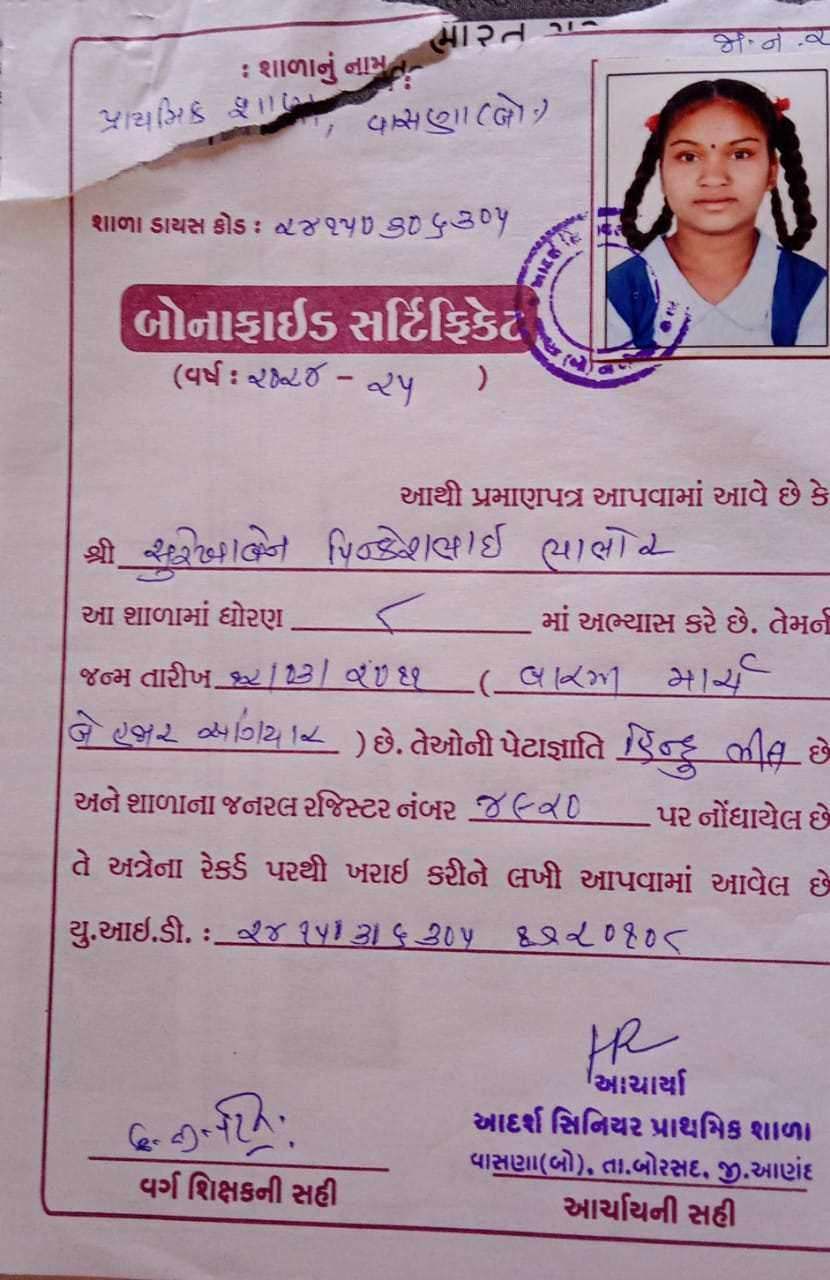 ભારત
જા.નં.૨
: શાળાનું નામ :
પ્રાથમિક શાળા, વાસણા(બો.)
શાળા ડાયસ કોડ : ૨૪૧૫૦૩૦૬૩૦૫
બોનાફાઇડ સર્ટિફિકેટ
(વર્ષ : ૨૦૨૪ - ૨૫ )
આથી પ્રમાણપત્ર આપવામાં આવે છે કે
શ્રી સુરેખાબેન પિન્કેશભાઈ ભાભોર
આ શાળામાં ધોરણ ૮ માં અભ્યાસ કરે છે. તેમની
જન્મ તારીખ ૧૨/૦૩/૨૦૧૧ ( બારમી માર્ચ
બે હજાર અગિયાર ) છે. તેઓની પેટાજ્ઞાતિ હિન્દુ ભીલ છે
અને શાળાના જનરલ રજિસ્ટર નંબર ૪૯૨૦ પર નોંધાયેલ છે
તે અત્રેના રેકર્ડ પરથી ખરાઇ કરીને લખી આપવામાં આવેલ છે
યુ.આઇ.ડી. :
આચાર્યા
આદર્શ સિનિયર પ્રાથમિક શાળા
વાસણા(બો), તા.બોરસદ, જી.આણંદ
વર્ગ શિક્ષકની સહી
આર્ચાયની સહી